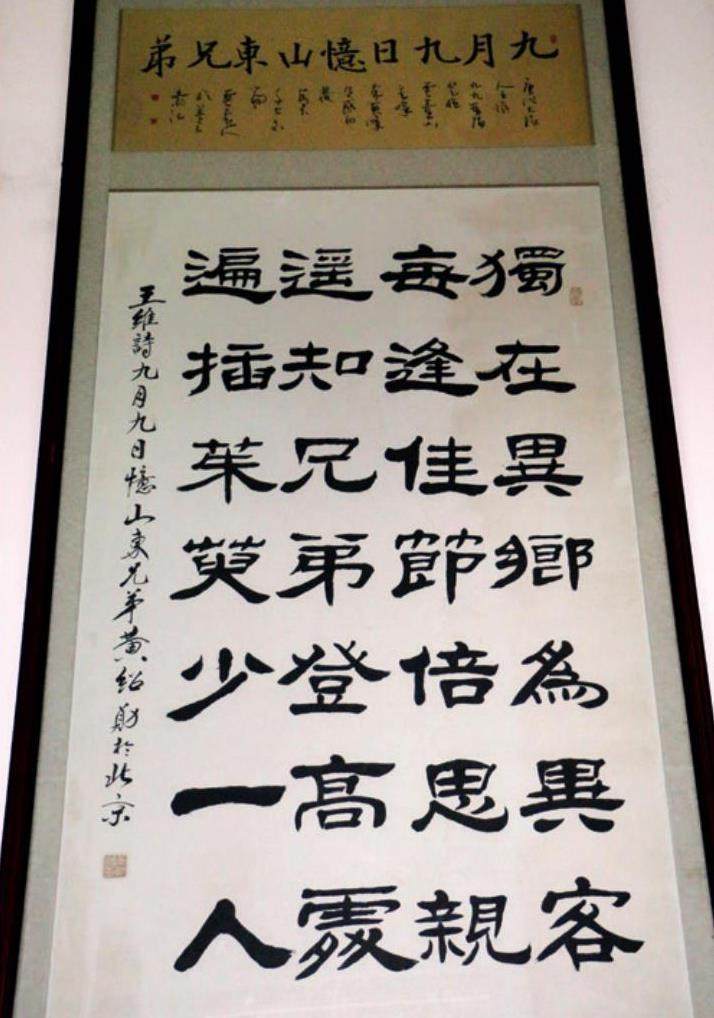 九月九日憶山東兄弟
獨在異鄉為異客
每逢佳節倍思親
遥知兄弟登高處
遍插茱萸少一人
王維詩九月九日憶山東兄弟黄紹勛於北京